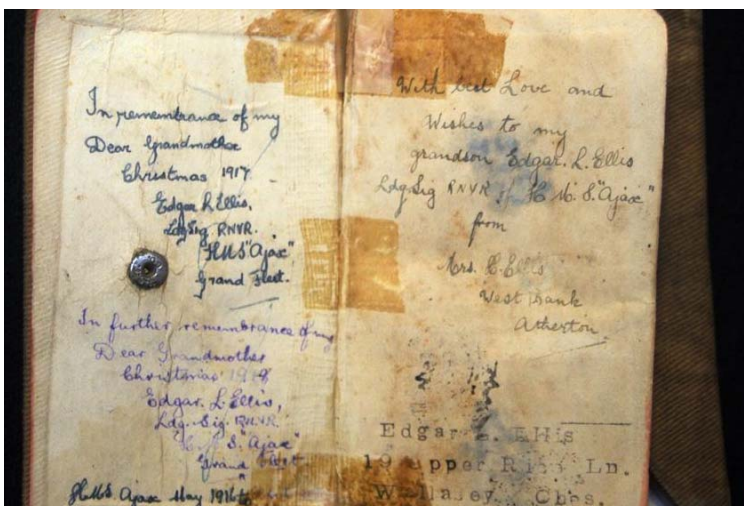 In remembrance of my
Dear Grandmother
Christmas 1917
Edgar L Ellis,
Ldg Sig RNVR.
HMS "Ajax"
Grand Fleet.
In further remembrance of my
Dear Grandmother
Christmas 1918
Edgar. L. Ellis,
Ldg. Sig. RNVR.
H. M. S. "Ajax"
Grand Fleet
HMS Ajax May 1916 to
With best Love and
Wishes to my
grandson Edgar. L. Ellis
Ldg Sig RNVR H. M. S. "Ajax"
from
Mrs. E. Ellis
West Bank
Atherton
Edgar L. Ellis
19 Upper Ln.
Wallasey Ches.